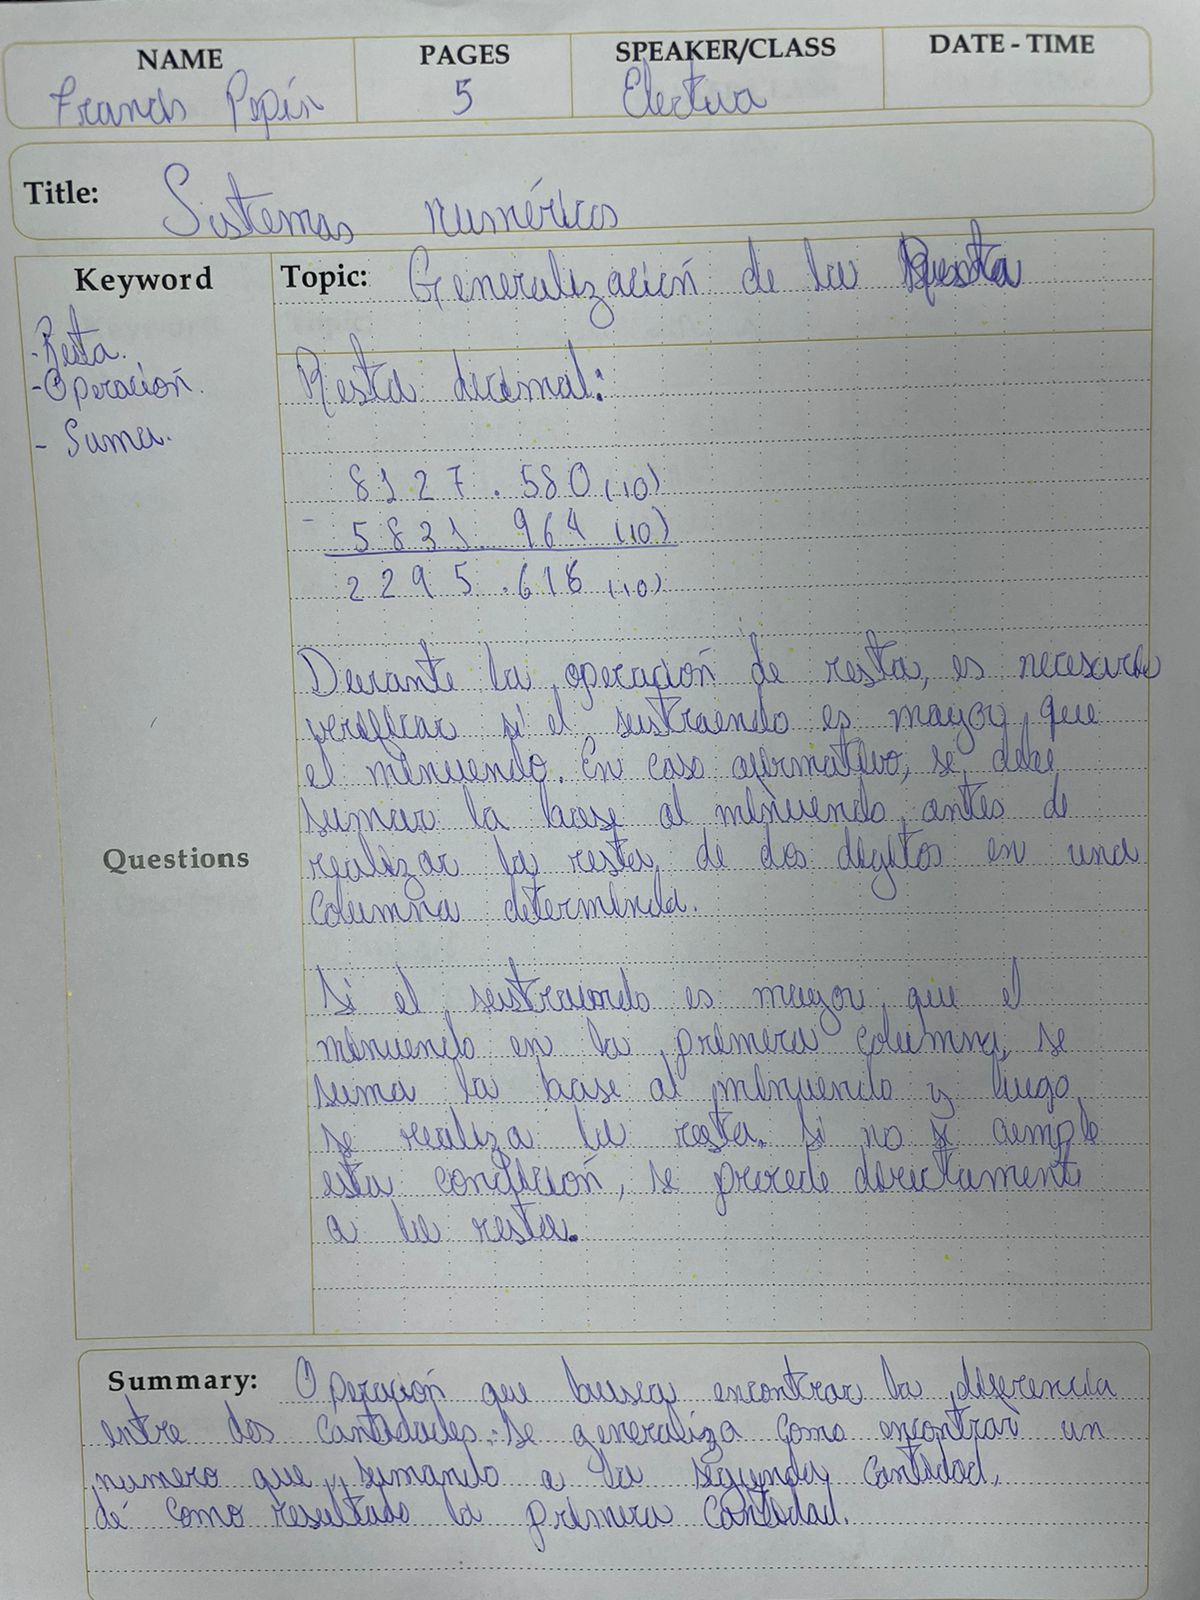 NAME PAGES SPEAKER/CLASS DATE - TIME
Francis Pepín 5 Electiva
Title: Sistemas numéricos
Keyword
Topic: Generalización de la Resta
- Resta.
- Operación.
- Suma.
Resta decimal:
8127.580(10)
- 5831.964(10)
2295.616(10)
Durante la operación de resta, es necesario
verificar si el sustraendo es mayor que
el minuendo. En caso afirmativo, se debe
sumar la base al minuendo antes de
realizar la resta de dos dígitos en una
columna determinda.
Questions
Si el sustraendo es mayor que el
minuendo en la primera columna, se
suma la base al minuendo y luego
se realiza la resta. Si no se cumple
esta condición, se procede directamente
a la resta.
Summary: Operación que busca encontrar la diferencia
entre dos cantidades. Se generaliza como encontrar un
número que, sumando a la segunda cantidad,
dé como resultado la primera cantidad.